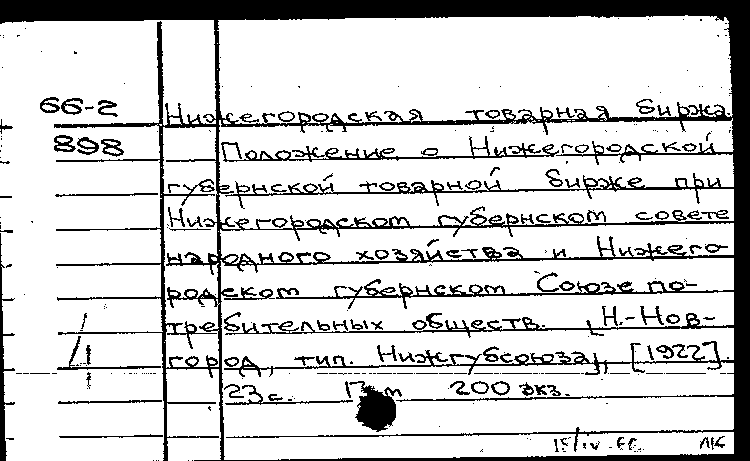 66-2
Нижегородская товарная биржа
898
Положение о Нижегородской
губернской товарной бирже при
Нижегородском губернском совете
народного хозяйства и Нижего-
родском губернском Союзе по-
требительных обществ. [Н.-Нов-
город, тип. Нижгубсоюза], [1922].
23 с. 200 экз.
15/IV-66. ЛК